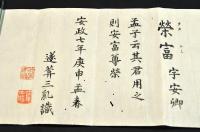 榮富 字安卿
孟子云其君用之
則安富尊榮
安政七年庚申孟春
遂菴三乱識